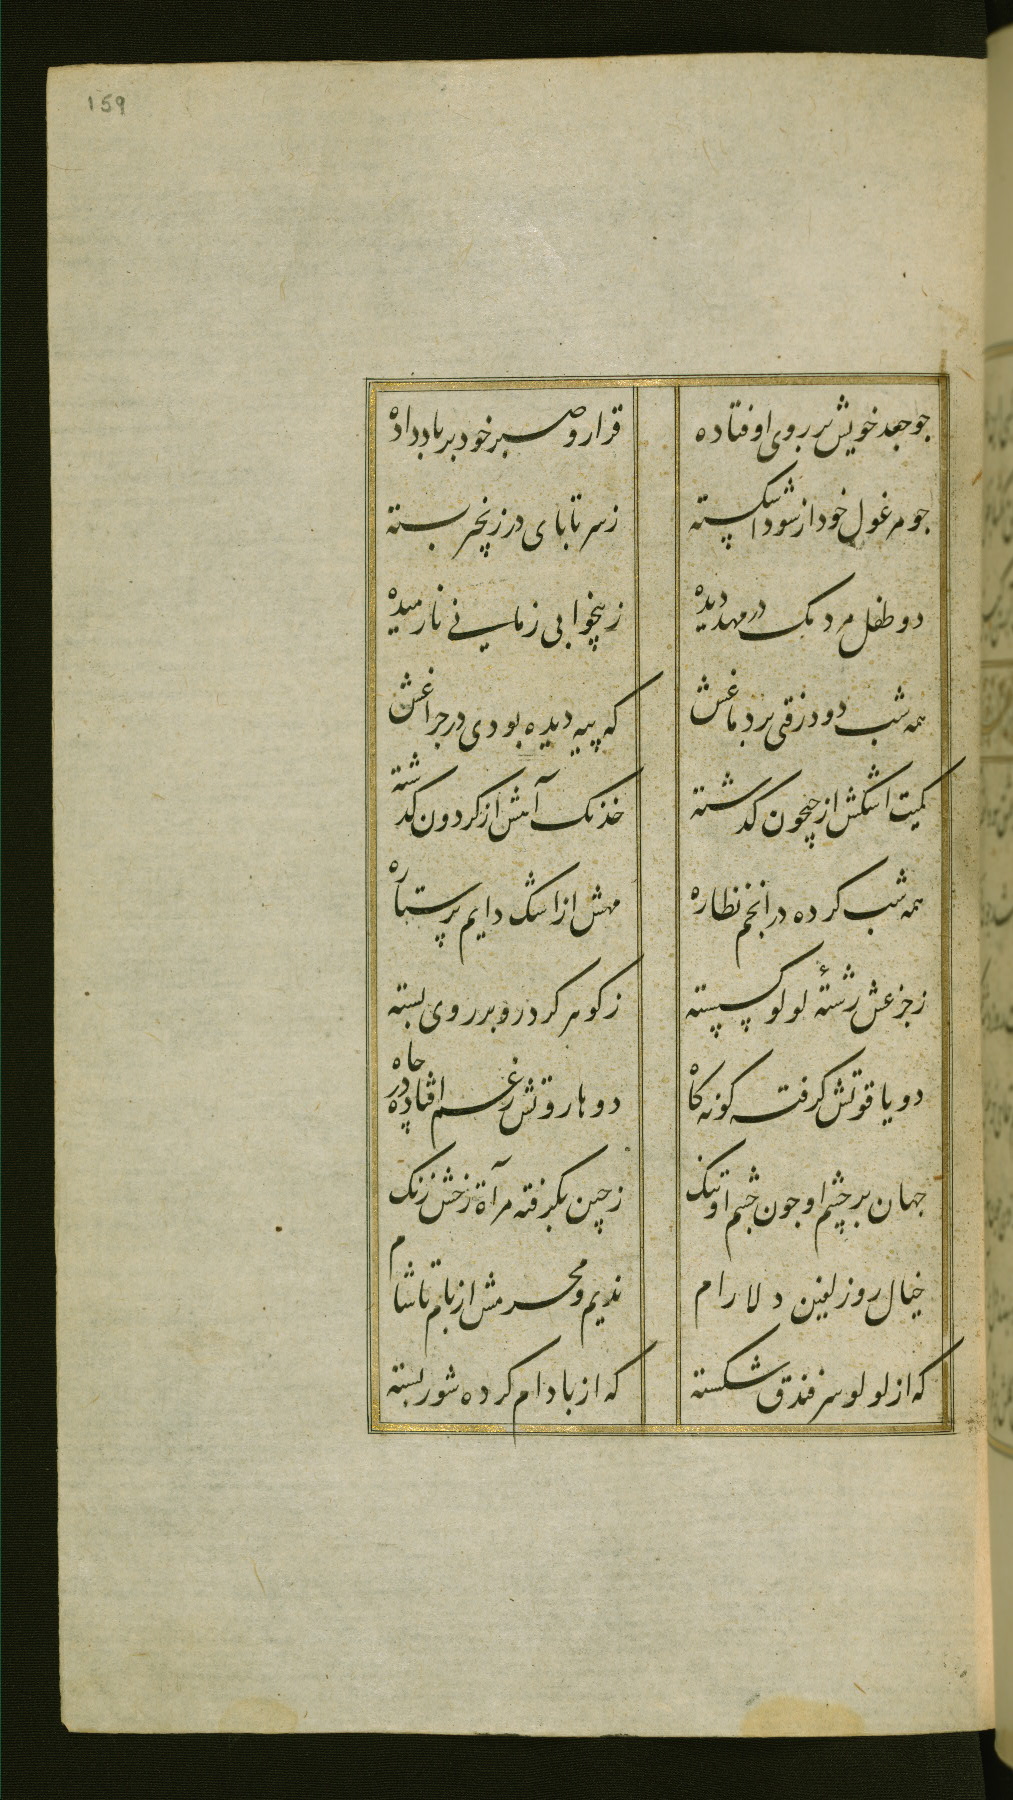 159
جو جعد خویش بر روی اوفتاده
قرار و صبر خود بر باد داده
جو مرغول خود از سودا شکسته
ز سر تا بای در زنجیر بسته
دو طفل مردمک در مهد دیده
ز بیخوابی زمانی نارمیده
همه شب دود زقی بر دماغش
که پیه دیده بودی در جراغش
کمیت اشکش از جیحون کذشته
خدنک آهش از کردون کذشته
همه شب کرده در انجم نظاره
مهش از اشک دایم پر ستاره
ز جزعش رشتهٔ لولو کسسته
ز کوهر کرد رو بر روی بسته
دو یاقوتش کرفته کونه کاه
دو هاروتش ز غم افتاده در جاه
جهان بر چشم او جون چشم او تنک
ز چین بکرفته مرآة رخش زنک
خیال روز لفین دلارام
ندیم و محرمش از بام تا شام
که از لولو سر فندق شکسته
که از بادام کرده شور بسته